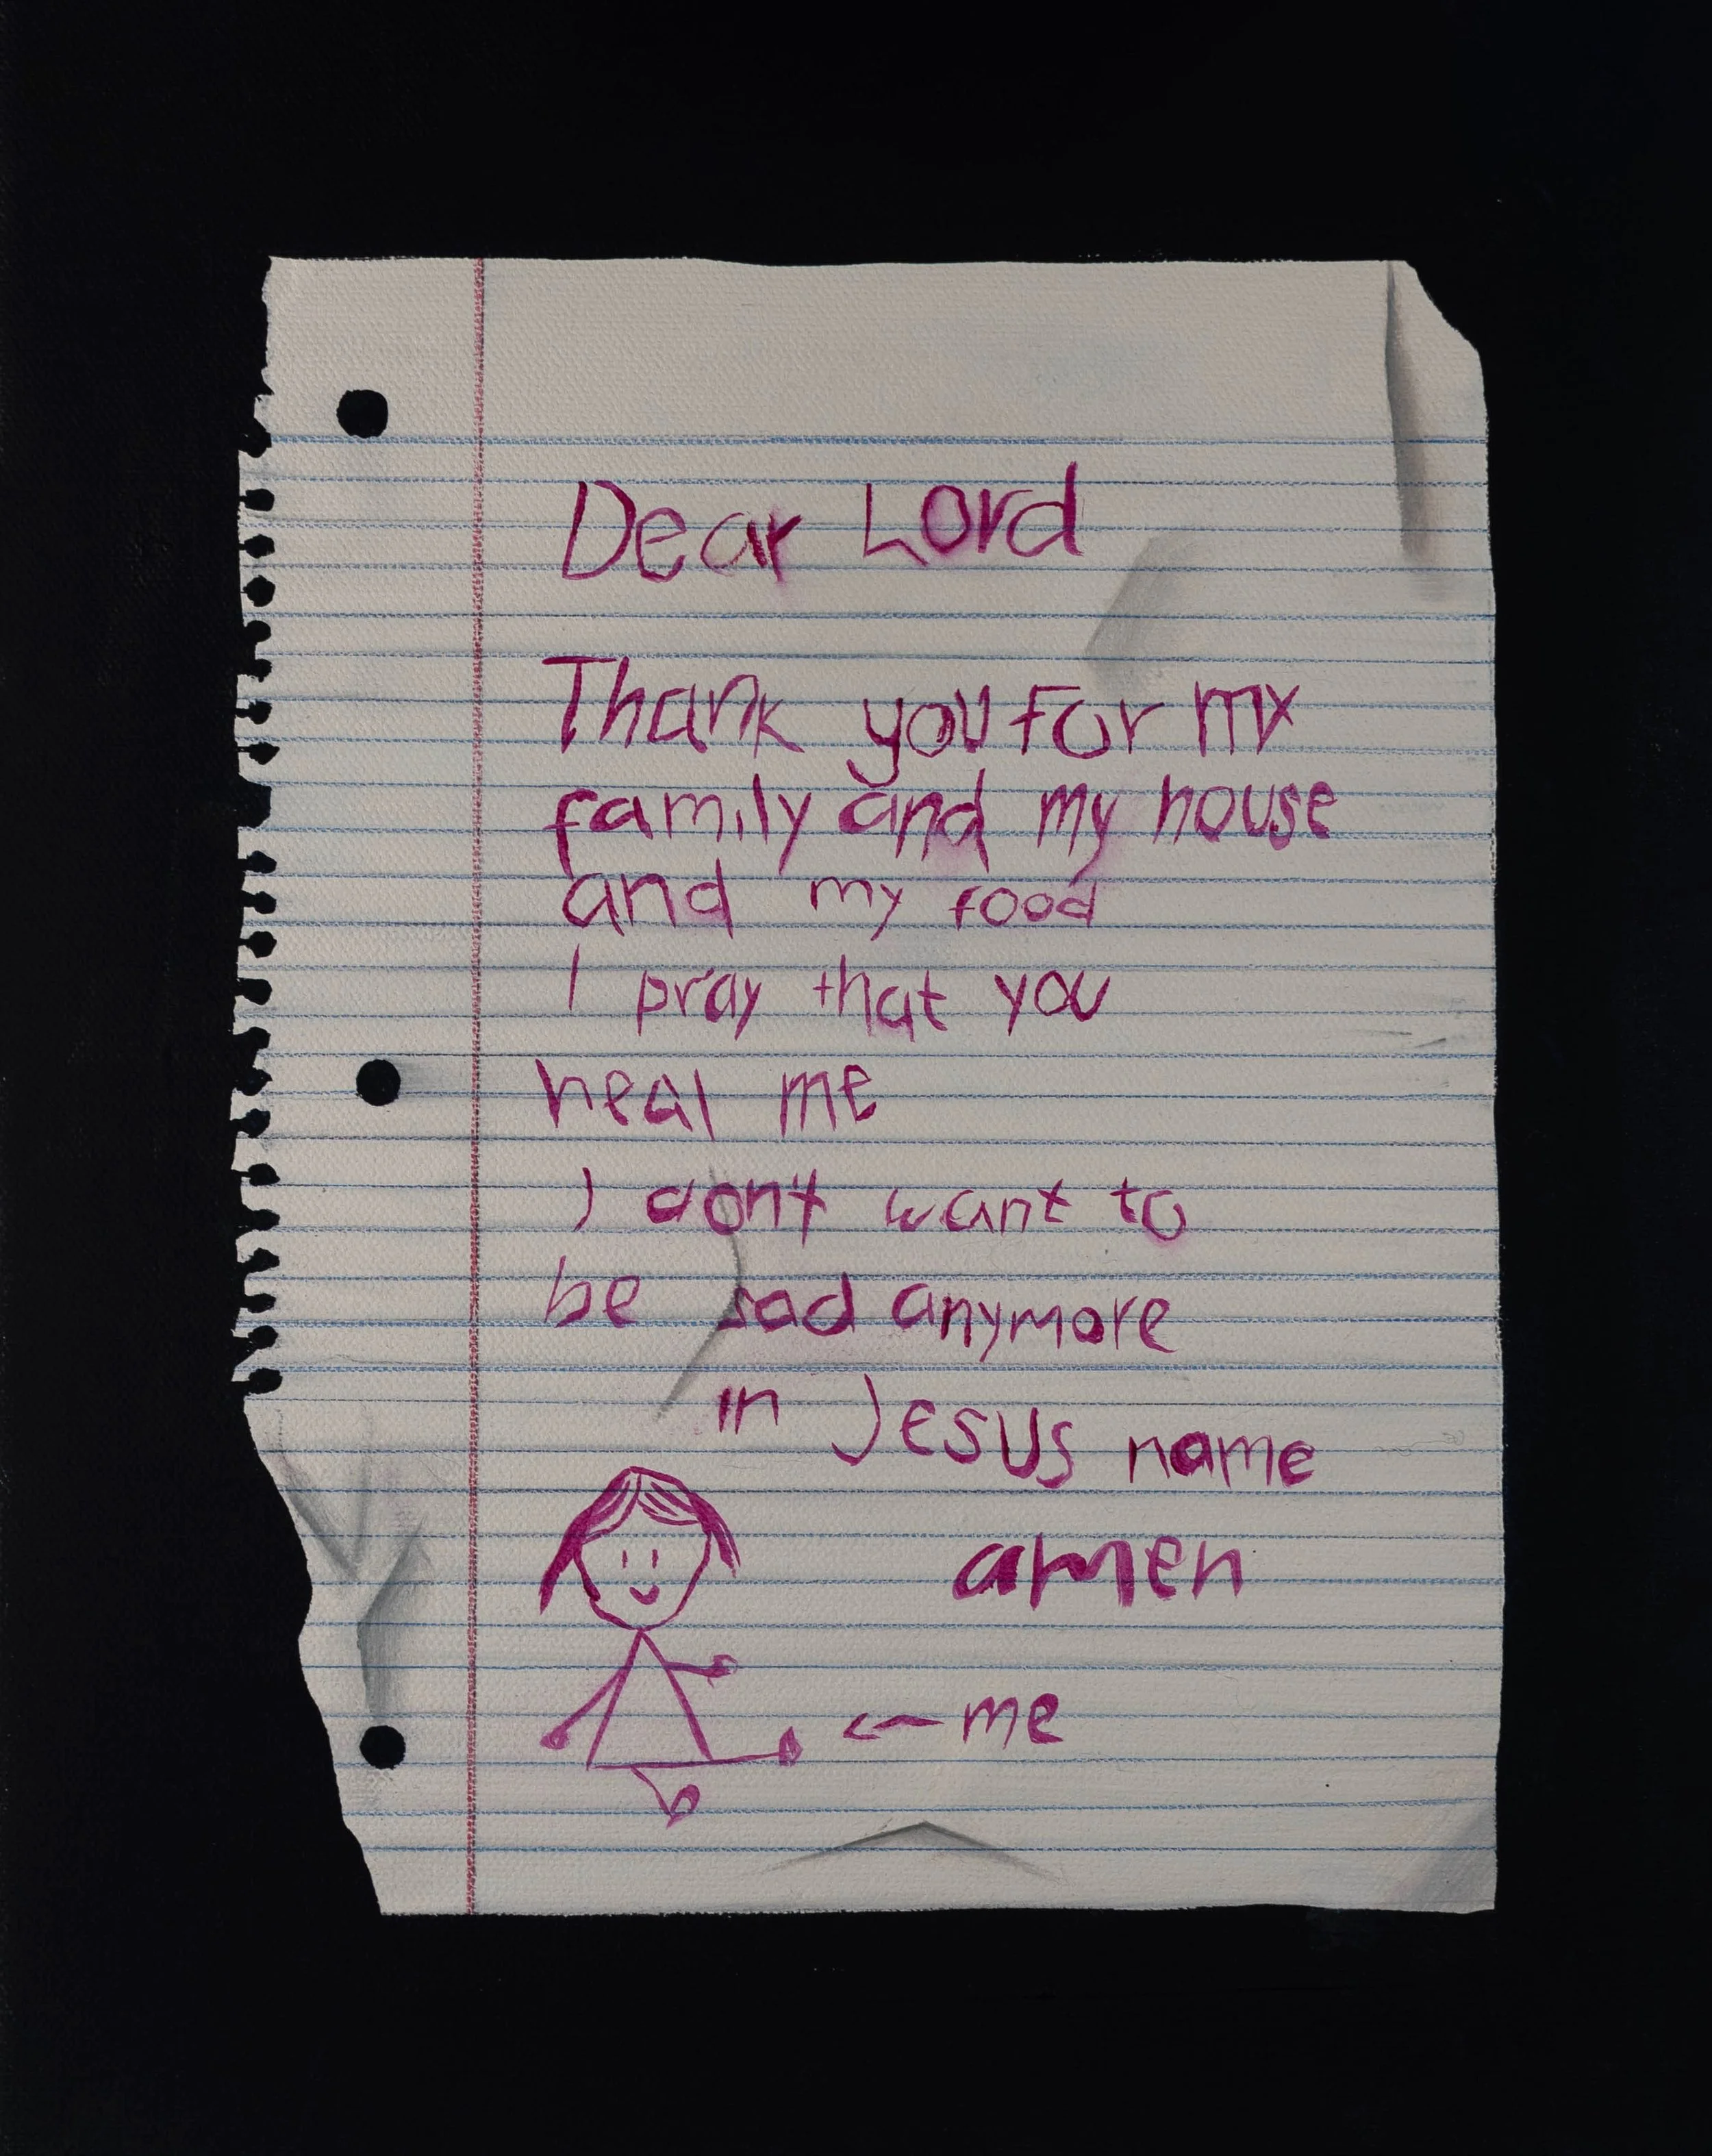 Dear Lord
Thank you for my
family and my house
and my food
I pray that you
heal me
I don't want to
be sad anymore
in Jesus name
amen
← me